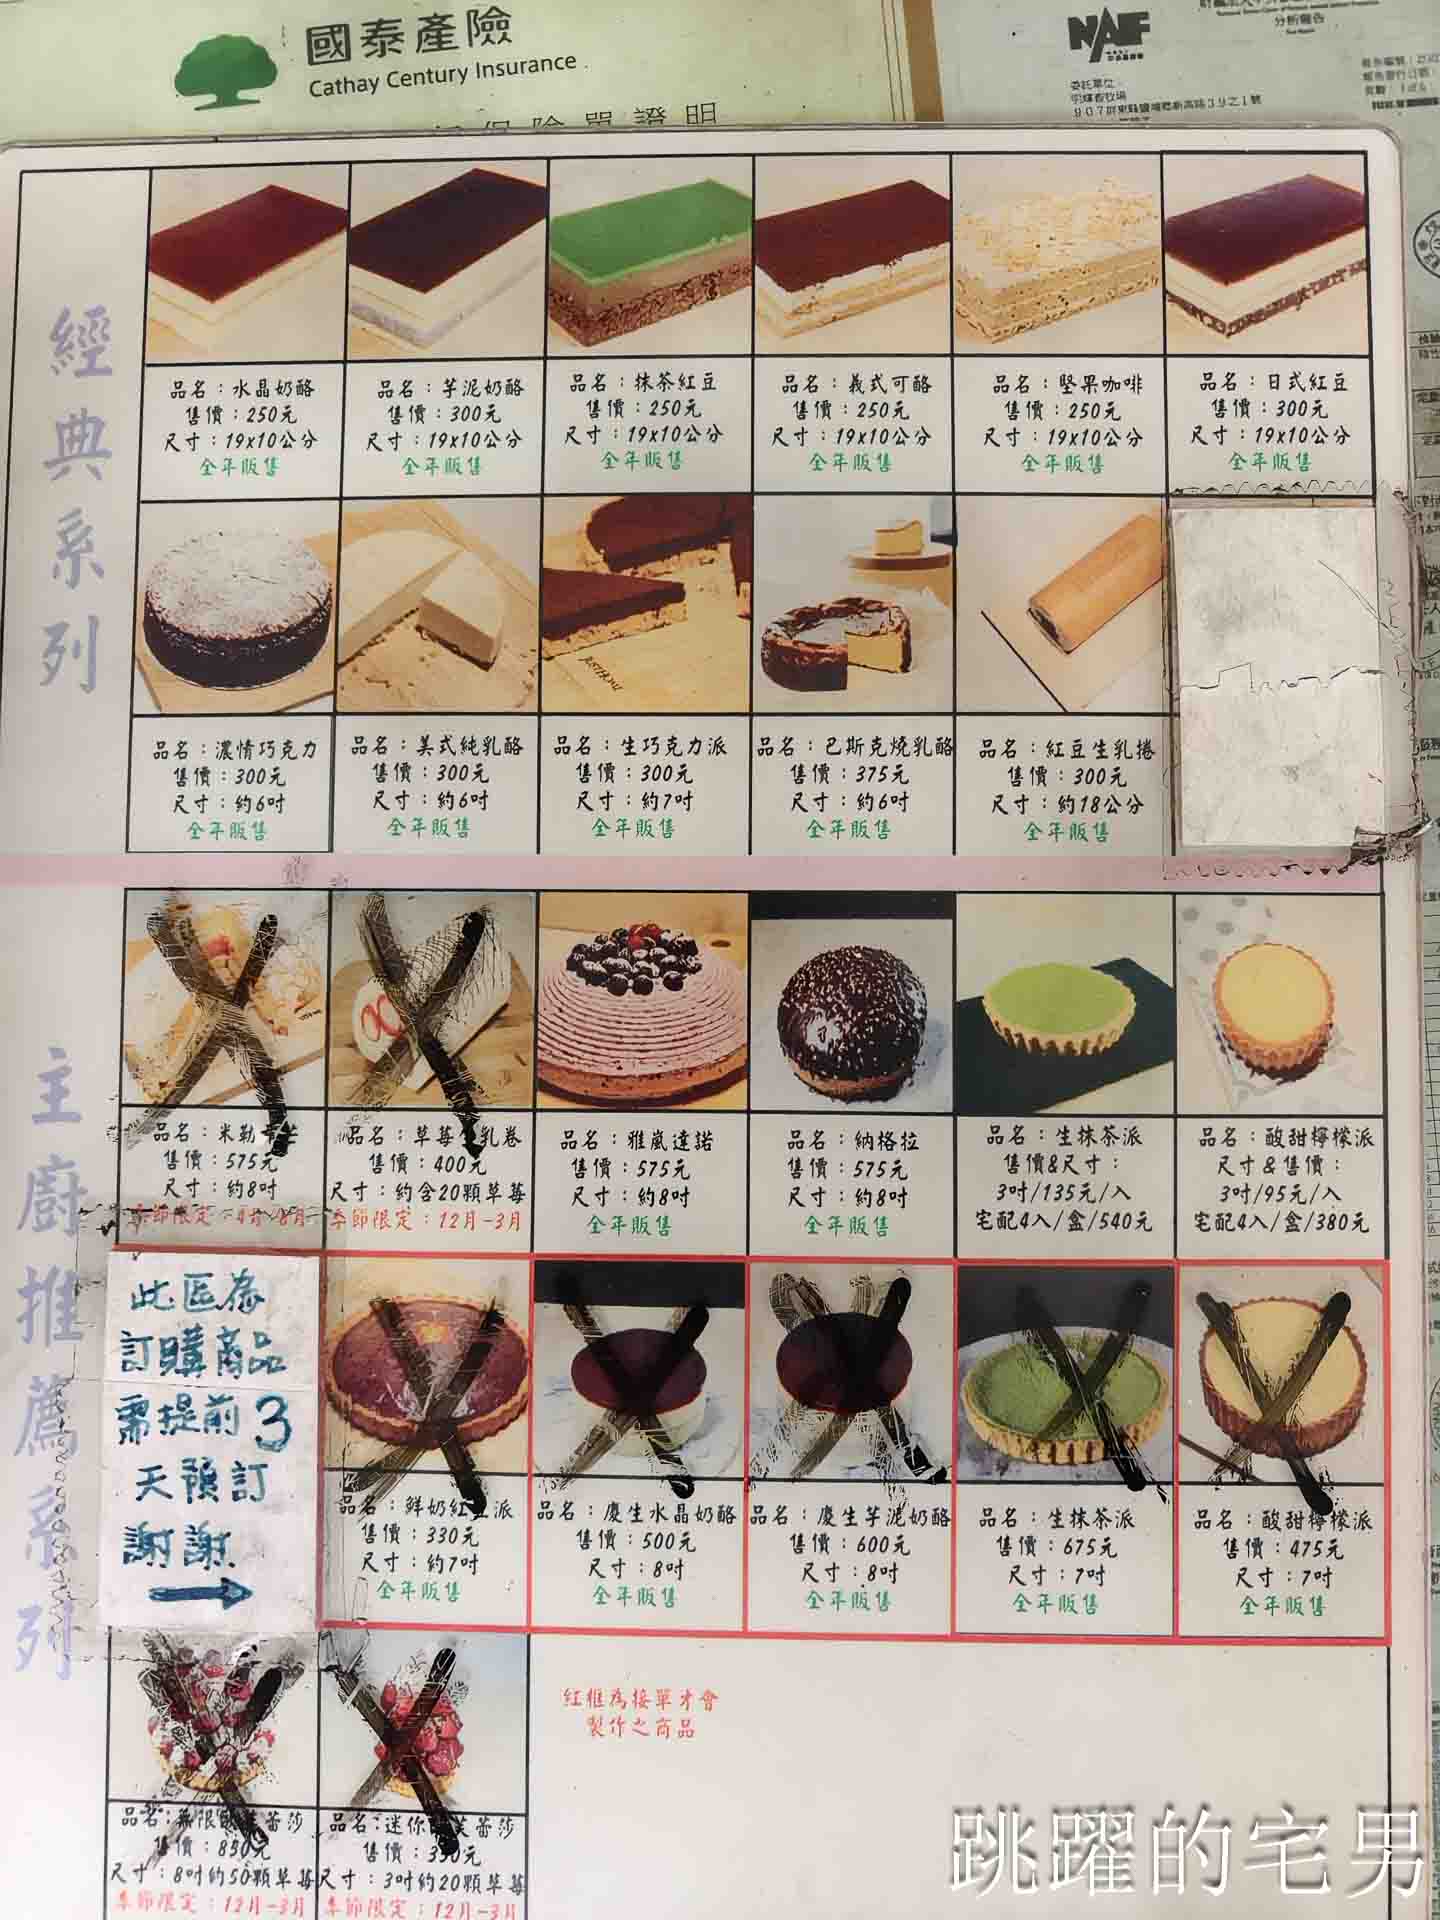 國泰產險
Cathay Century Insurance
NAIF
分析報告
委託單位
經典系列
品名：水晶奶酪
售價：250元
尺寸：19x10公分
全年販售
品名：芋泥奶酪
售價：300元
尺寸：19x10公分
全年販售
品名：抹茶紅豆
售價：250元
尺寸：19x10公分
全年販售
品名：義式可酪
售價：250元
尺寸：19x10公分
全年販售
品名：堅果咖啡
售價：250元
尺寸：19x10公分
全年販售
品名：日式紅豆
售價：300元
尺寸：19x10公分
全年販售
品名：濃情巧克力
售價：300元
尺寸：約6吋
全年販售
品名：美式純乳酪
售價：300元
尺寸：約6吋
全年販售
品名：生巧克力派
售價：300元
尺寸：約7吋
全年販售
品名：巴斯克燒乳酪
售價：375元
尺寸：約6吋
全年販售
品名：紅豆生乳捲
售價：300元
尺寸：約18公分
全年販售
主廚推薦系列
品名：米勒
售價：575元
尺寸：約8吋
季節限定：4月-8月
品名：草莓生乳卷
售價：400元
尺寸：約含20顆草莓
季節限定：12月-3月
品名：雅嵐達諾
售價：575元
尺寸：約8吋
全年販售
品名：納格拉
售價：575元
尺寸：約8吋
全年販售
品名：生抹茶派
售價&尺寸：
3吋/135元/入
宅配4入/盒/540元
品名：酸甜檸檬派
尺寸&售價：
3吋/95元/入
宅配4入/盒/380元
此區為
訂購商品
需提前3
天預訂
謝謝
品名：鮮奶紅豆派
售價：330元
尺寸：約7吋
全年販售
品名：慶生水晶奶酪
售價：500元
尺寸：8吋
全年販售
品名：慶生芋泥奶酪
售價：600元
尺寸：8吋
全年販售
品名：生抹茶派
售價：675元
尺寸：7吋
全年販售
品名：酸甜檸檬派
售價：475元
尺寸：7吋
全年販售
品名：無限 蕾莎
售價：850元
尺寸：8吋約50顆草莓
季節限定：12月-3月
品名：迷你 芙蕾莎
售價：350元
尺寸：3吋約20顆草莓
季節限定：12月-3月
紅框為接單才會
製作之商品
跳躍的宅男